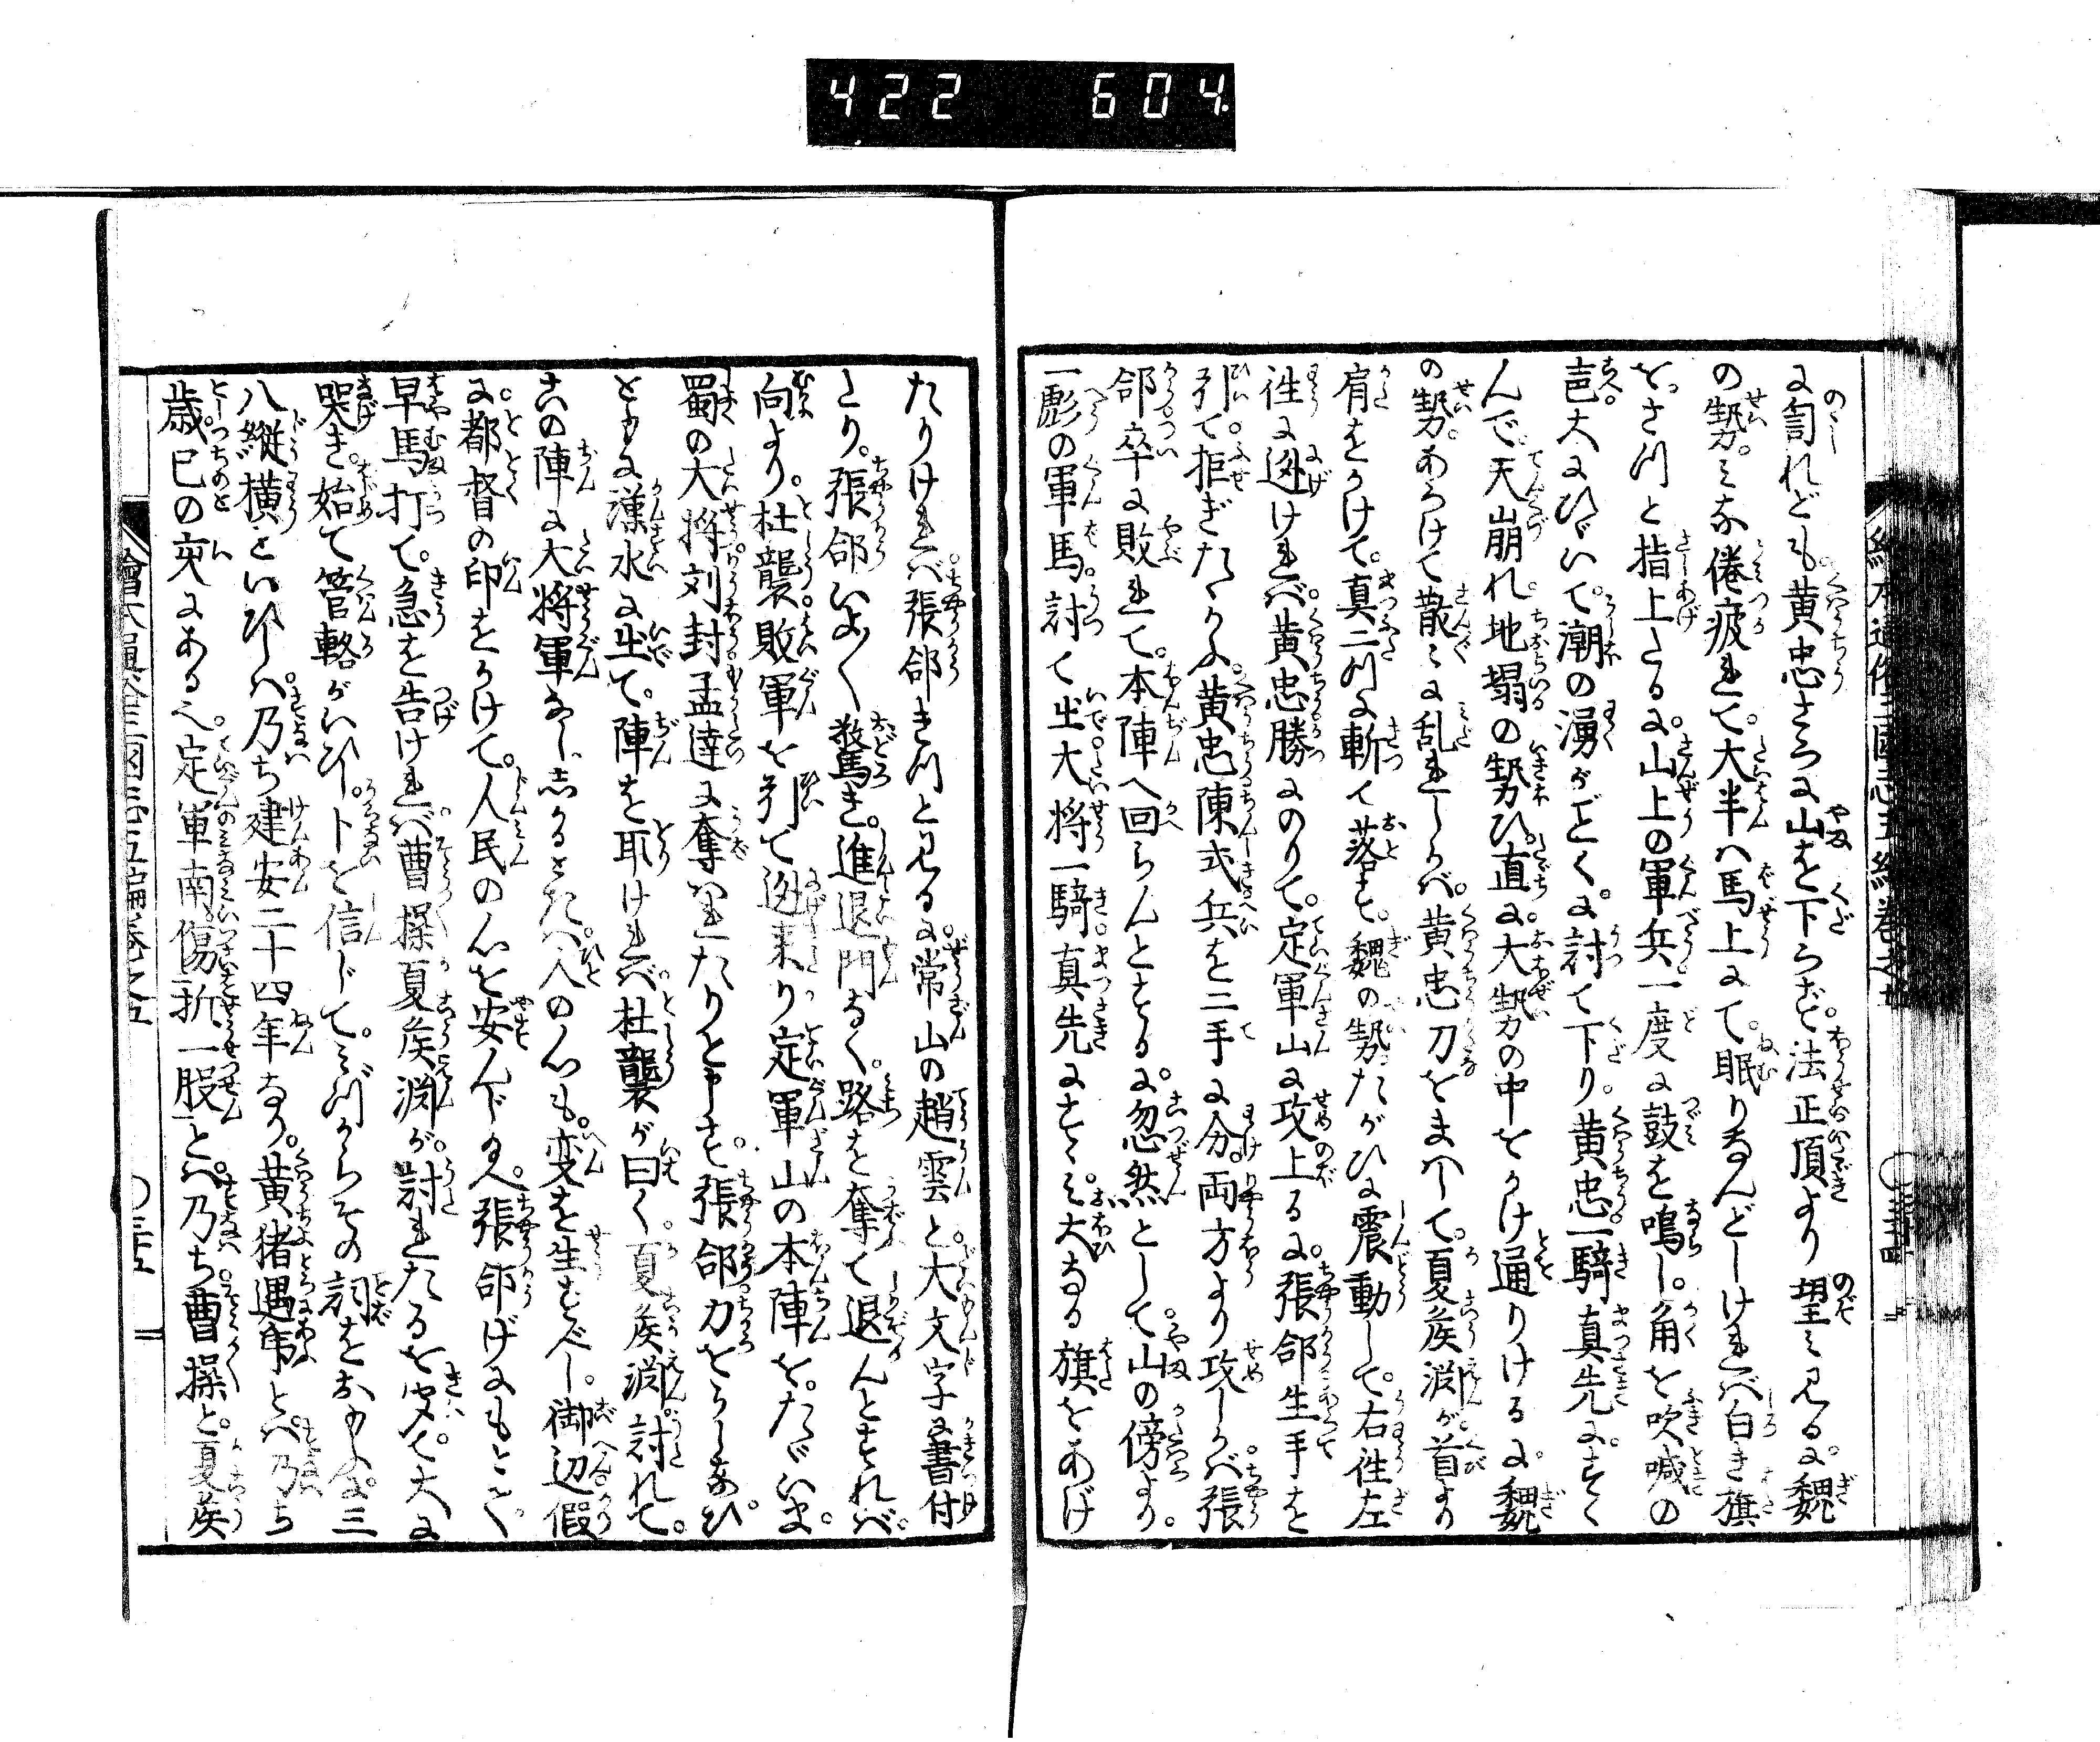 422 604
に罵れども黄忠さらに山を下らず法正頂より望み見るに魏
の勢みな倦疲れて大半ハ馬上にて眠りなんどしけれバ白き旗
をさつと指上たるに山上の軍兵一度に鼓を鳴し角を吹喊の
声大にひゞいて潮の湧がごとくに討て下り黄忠一騎真先にすゝ
んで天崩れ地塌の勢ひ直に大勢の中をかけ通りけるに魏
の勢あわけて散々に乱れしかバ黄忠刀をまハして夏侯淵が首より
肩をかけて真二つに斬て落す魏の勢たがひに震動して右往左
往に迯けれバ黄忠勝にのりて定軍山に攻上るに張郃生手を
引て拒ぎたゝかふ黄忠陳式兵を二手に分両方より攻しかバ張
郃卒に敗れて本陣へ回らんとするに忽然として山の傍より
一彪の軍馬討て出大将一騎真先にすゝみ大なる旗をあげ
たりけれバ張郃きつと見るに常山の趙雲と大文字に書付
たり張郃いよ〳〵驚き進退門なく路を奪て退んとすれバ
向より杜襲敗軍を引て迯来り定軍山の本陣をたゞいま
蜀の大将刘封孟達に奪ハれたりと申す張郃力をうしなひ
ともに漢水に出て陣を取けれバ杜襲が曰く夏侯淵討れて
この陣に大将軍なししかるときハ人の心も変を生ずべし御辺假
に都督の印をかけて人民の心を安んじ玉へ張郃げにもとて
早馬打て急を告けれバ曹操夏侯淵が討れたるを聞て大に
哭き始て管輅がいひしトを信じてみづからその詞をおもふに三
八縦横といひしハ乃ち建安二十四年なり黄猪遇虎とハ乃ち
歳己の亥にある也定軍南傷折一股とハ乃ち曹操と夏侯
繪本通俗三國志五編巻之五
三十五